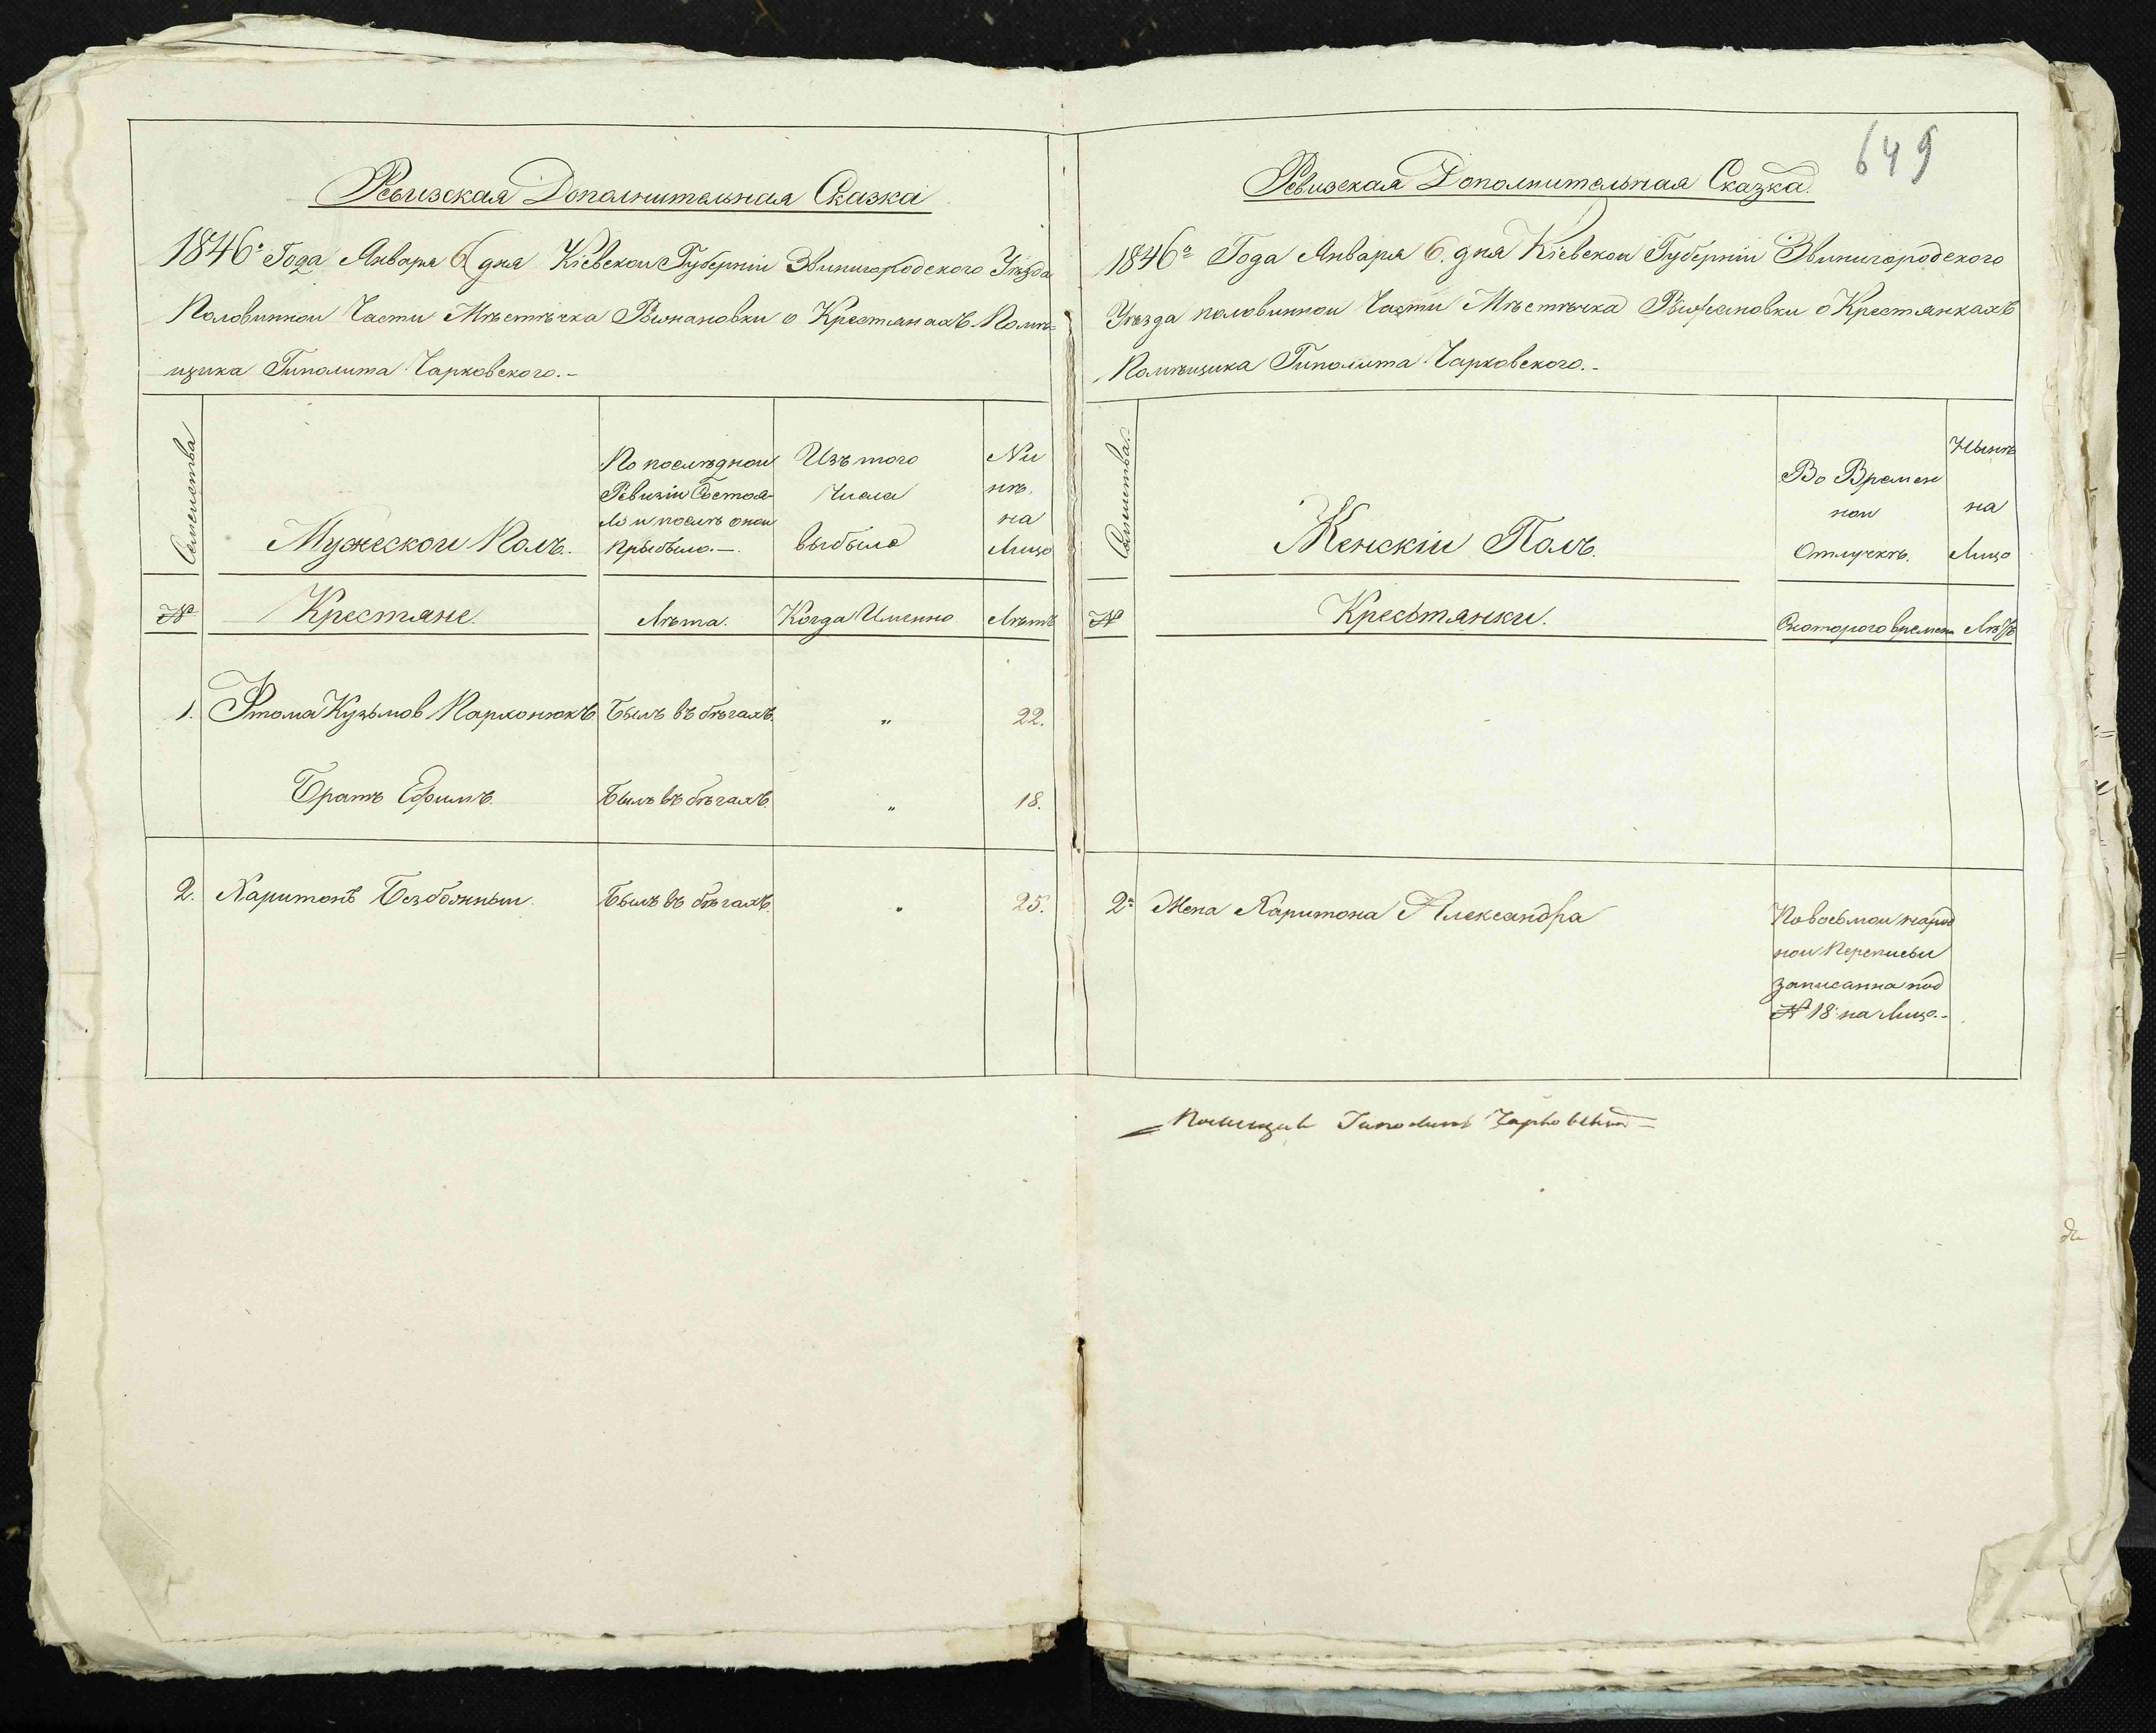 Ревизская Дополнительная Сказка
1846го Года Января 6 дня Кіевской Губерніи Звинигородского Уѣзда
Половинной Части Мѣстѣчка Рыжановки о Крестянахъ Помѣ-
щика Гиполита Чарковского.-
Семейства
Мужеской Полъ.
По послѣдной
Ревизіи Состоя-
ло и послѣ оной
прыбыло.-
Изъ того
Числа
выбыло
Ны
нѣ.
на
Лицо
№
Крестяне.
Лѣта.
Когда Именно
Лѣтъ
1. Фтома Кузьмов Паржонюкъ Былъ въ бѣгахъ. „ 22.
Братъ Ефимъ. Былъ въ бѣгахъ. „ 18.
2. Харитонъ Безбожный. Былъ въ бѣгахъ. „ 25.
649
Ревизская Дополнительная Сказка.
1846го Года Января 6. дня Кіевской Губерніи Звинигородского
Уѣзда половинной Части Мѣстѣчка Рыжановки о Крестянкахъ
Помѣщика Гиполита Чарковского.-
Семейства.
Женскій Полъ.
Во Времен
ной
Отлучкѣ.
Нынѣ
на
Лицо
№
Крестьянки.
Скоторого времени
Лѣтъ
2я Жена Харитона Александра
По восьмой народ
ной Переписьи
записанна под
№ 18 на Лицо.-
Помещик Гиполит Чарковский